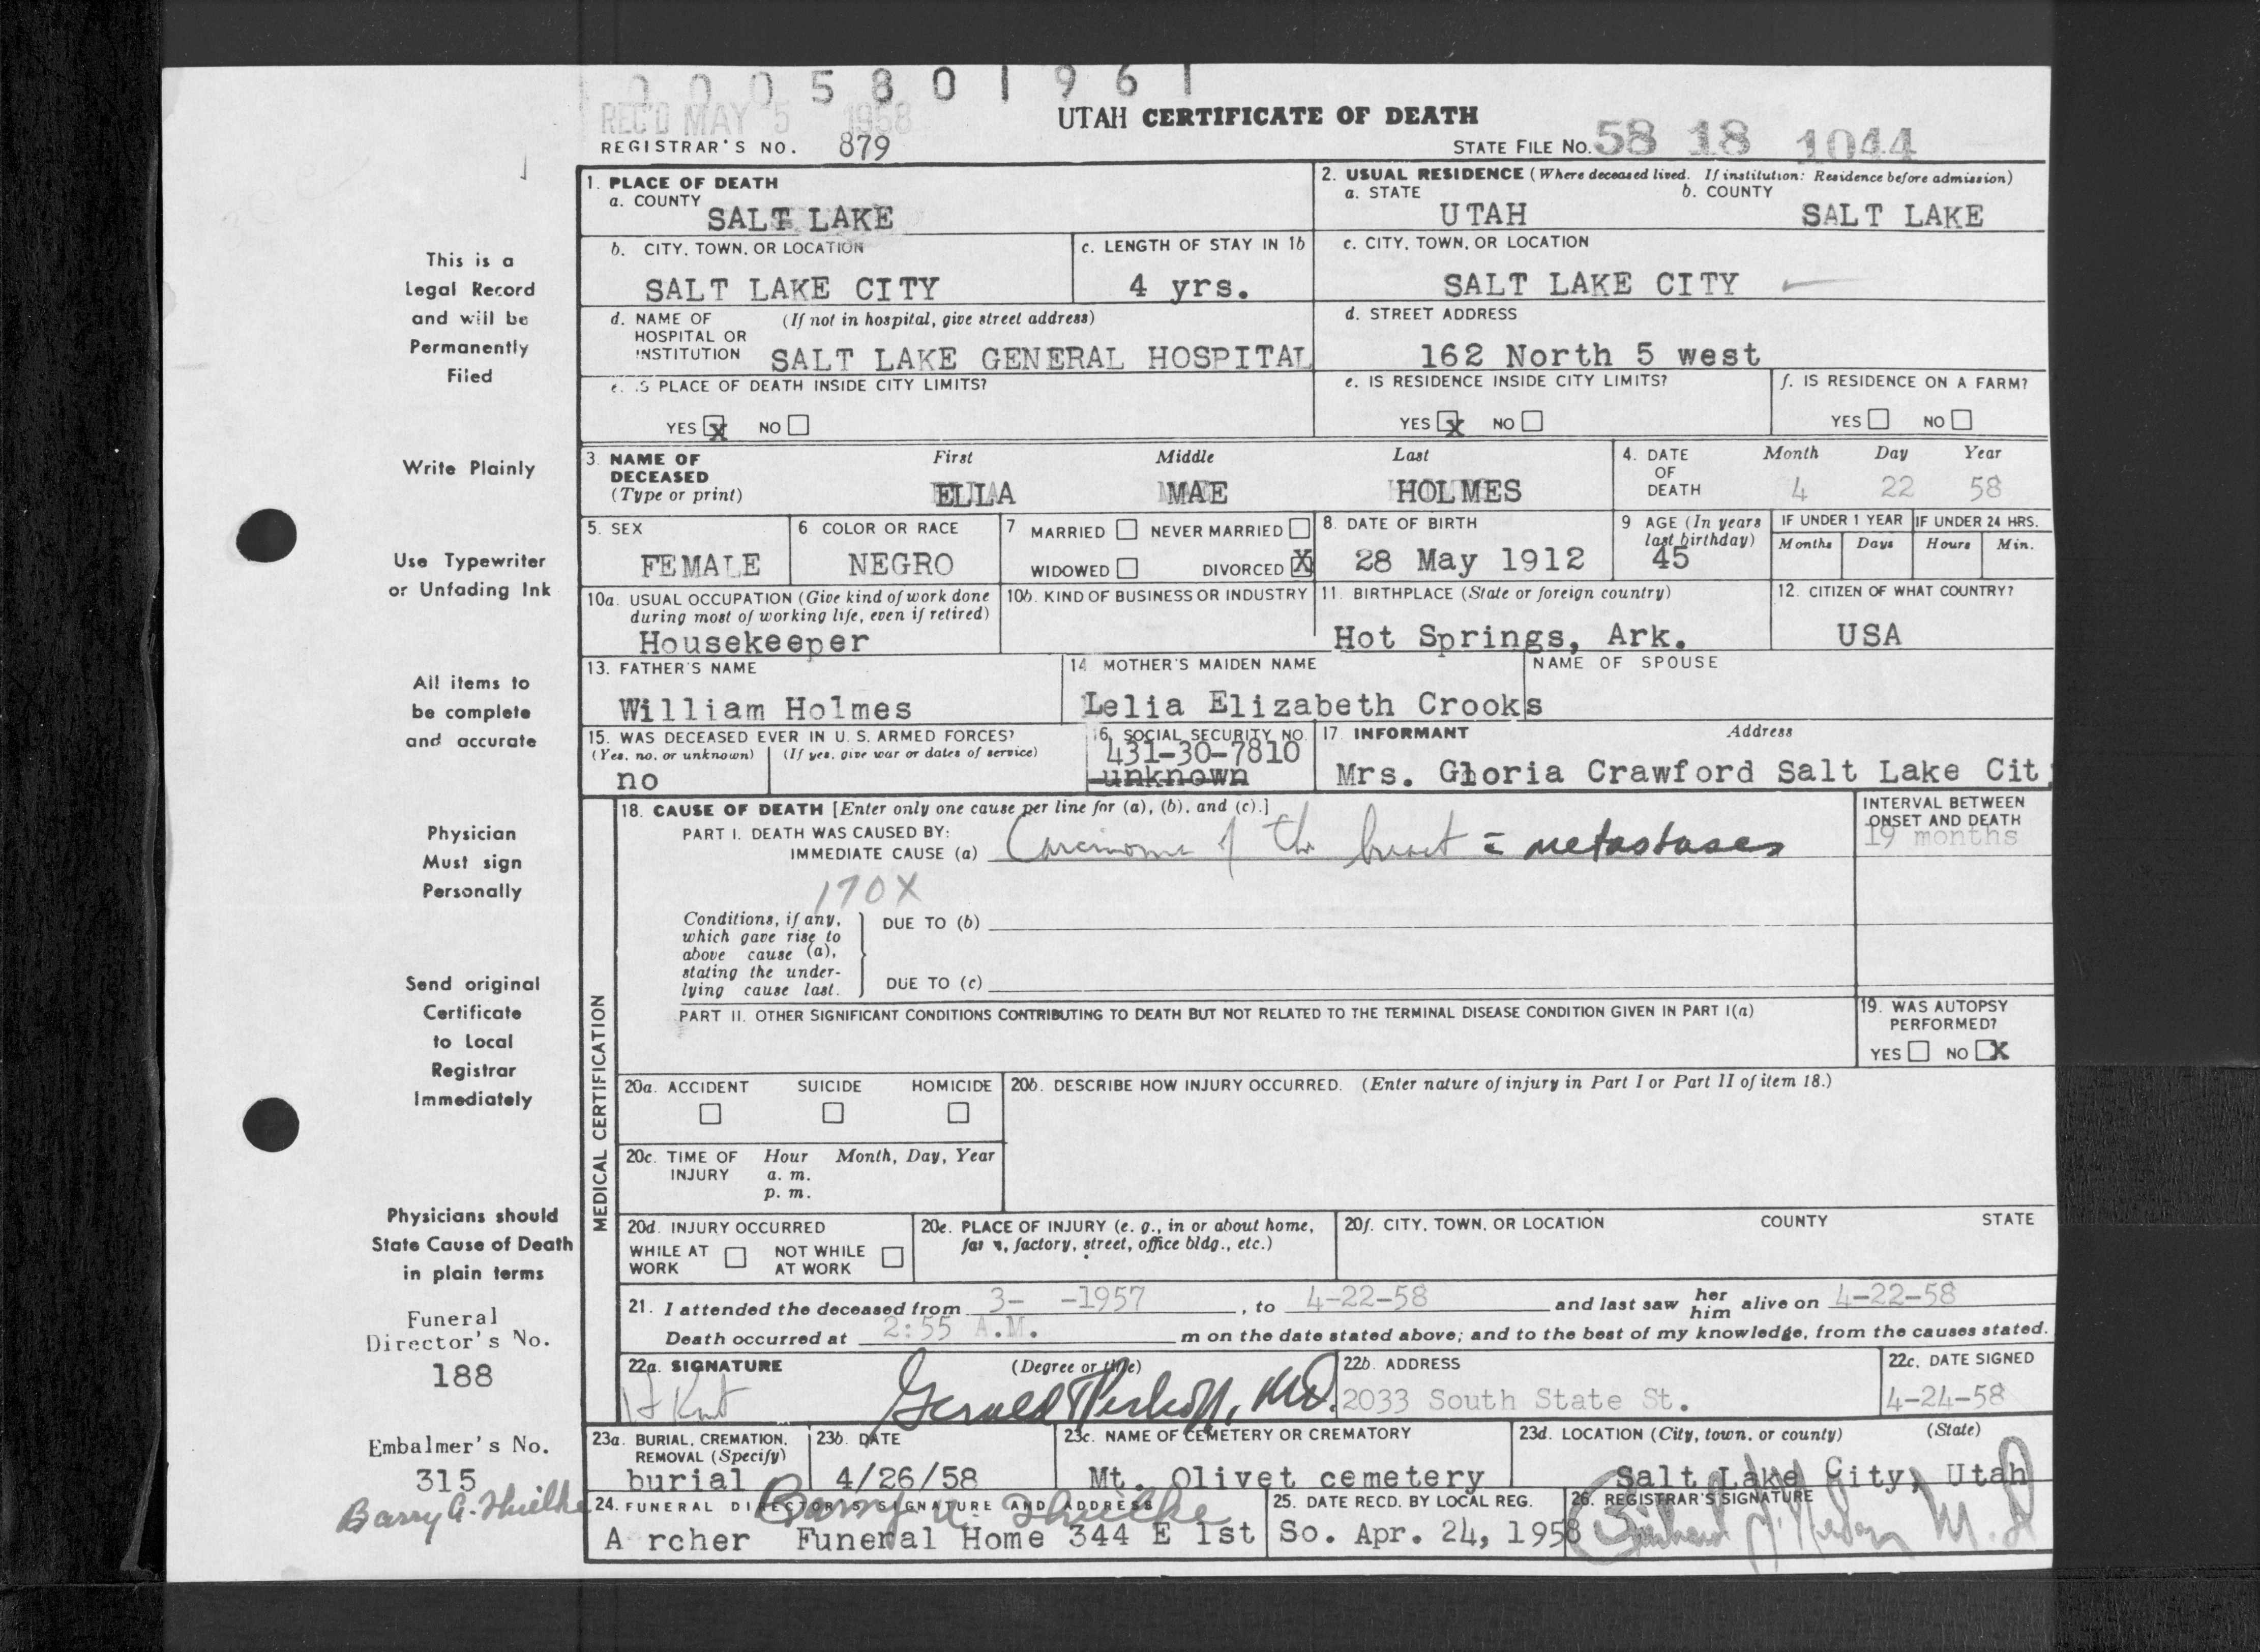 0 0 0 5 8 0 1 9 6 1
REC'D MAY 5 1958
UTAH CERTIFICATE OF DEATH
REGISTRAR'S NO. 879
STATE FILE NO. 58 18 1044
1. PLACE OF DEATH
a. COUNTY
SALT LAKE
2. USUAL RESIDENCE (Where deceased lived. If institution: Residence before admission)
a. STATE b. COUNTY
UTAH SALT LAKE
b. CITY, TOWN, OR LOCATION
SALT LAKE CITY
c. LENGTH OF STAY IN 1b
4 yrs.
c. CITY, TOWN, OR LOCATION
SALT LAKE CITY
d. NAME OF (If not in hospital, give street address)
HOSPITAL OR
INSTITUTION SALT LAKE GENERAL HOSPITAL
d. STREET ADDRESS
162 North 5 west
e. IS PLACE OF DEATH INSIDE CITY LIMITS?
YES X NO
e. IS RESIDENCE INSIDE CITY LIMITS?
YES X NO
f. IS RESIDENCE ON A FARM?
YES NO
3. NAME OF DECEASED
(Type or print)
First Middle Last
ELLA MAE HOLMES
4. DATE OF DEATH
Month Day Year
4 22 58
5. SEX
FEMALE
6 COLOR OR RACE
NEGRO
7 MARRIED NEVER MARRIED
WIDOWED DIVORCED X
8. DATE OF BIRTH
28 May 1912
9 AGE (In years
last birthday)
45
IF UNDER 1 YEAR IF UNDER 24 HRS.
Months Days Hours Min.
10a. USUAL OCCUPATION (Give kind of work done
during most of working life, even if retired)
Housekeeper
10b. KIND OF BUSINESS OR INDUSTRY
11. BIRTHPLACE (State or foreign country)
Hot Springs, Ark.
12. CITIZEN OF WHAT COUNTRY?
USA
13. FATHER'S NAME
William Holmes
14 MOTHER'S MAIDEN NAME
Lelia Elizabeth Crooks
NAME OF SPOUSE
15. WAS DECEASED EVER IN U. S. ARMED FORCES?
(Yes, no, or unknown) (If yes, give war or dates of service)
no
16. SOCIAL SECURITY NO.
431-30-7810
unknown
17. INFORMANT Address
Mrs. Gloria Crawford Salt Lake Cit
MEDICAL CERTIFICATION
18. CAUSE OF DEATH [Enter only one cause per line for (a), (b), and (c).]
PART I. DEATH WAS CAUSED BY:
IMMEDIATE CAUSE (a) Carcinoma of the breast c metastases
INTERVAL BETWEEN
ONSET AND DEATH
19 months
170X
Conditions, if any,
which gave rise to
above cause (a),
stating the under-
lying cause last.
DUE TO (b)
DUE TO (c)
PART II. OTHER SIGNIFICANT CONDITIONS CONTRIBUTING TO DEATH BUT NOT RELATED TO THE TERMINAL DISEASE CONDITION GIVEN IN PART I(a)
19. WAS AUTOPSY
PERFORMED?
YES NO X
20a. ACCIDENT SUICIDE HOMICIDE
20b. DESCRIBE HOW INJURY OCCURRED. (Enter nature of injury in Part I or Part II of item 18.)
20c. TIME OF INJURY Hour Month, Day, Year
a. m.
p. m.
20d. INJURY OCCURRED
WHILE AT WORK NOT WHILE AT WORK
20e. PLACE OF INJURY (e. g., in or about home,
farm, factory, street, office bldg., etc.)
20f. CITY, TOWN, OR LOCATION COUNTY STATE
21. I attended the deceased from 3- -1957, to 4-22-58 and last saw her him alive on 4-22-58
Death occurred at 2:55 A.M. m on the date stated above; and to the best of my knowledge, from the causes stated.
22a. SIGNATURE (Degree or title)
Gerald Perkoff, MD.
22b. ADDRESS
2033 South State St.
22c. DATE SIGNED
4-24-58
23a. BURIAL, CREMATION,
REMOVAL (Specify)
burial
23b. DATE
4/26/58
23c. NAME OF CEMETERY OR CREMATORY
Mt. Olivet cemetery
23d. LOCATION (City, town, or county) (State)
Salt Lake City, Utah
24. FUNERAL DIRECTOR'S SIGNATURE AND ADDRESS
Archer Funeral Home 344 E 1st So.
25. DATE RECD. BY LOCAL REG.
Apr. 24, 1958
26. REGISTRAR'S SIGNATURE
M.D.
This is a
Legal Record
and will be
Permanently
Filed
Write Plainly
Use Typewriter
or Unfading Ink
All items to
be complete
and accurate
Physician
Must sign
Personally
Send original
Certificate
to Local
Registrar
Immediately
Physicians should
State Cause of Death
in plain terms
Funeral
Director's No.
188
Embalmer's No.
315